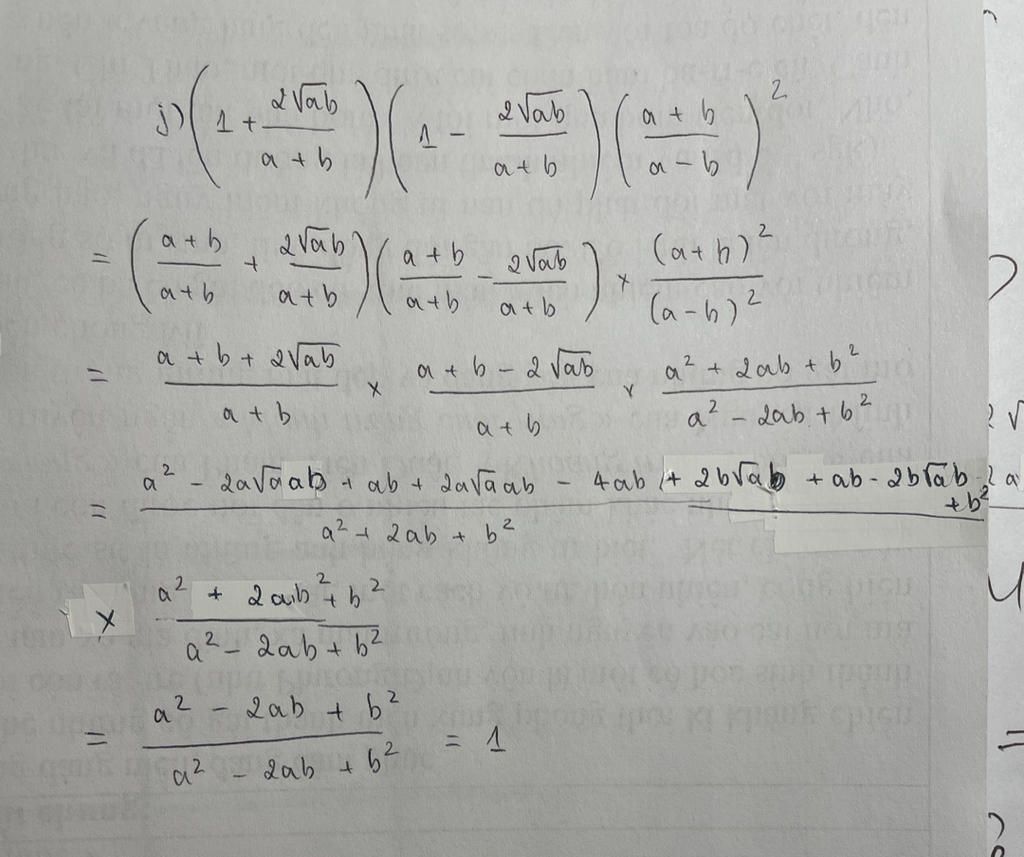 j) (1 + 2√ab / a + b) (1 - 2√ab / a + b) (a + b / a - b)²
= (a + b / a + b + 2√ab / a + b) (a + b / a + b - 2√ab / a + b) × (a + b)² / (a - b)²
= a + b + 2√ab / a + b × a + b - 2√ab / a + b × a² + 2ab + b² / a² - 2ab + b²
= a² - 2a√a ab + ab + 2a√a ab - 4ab + 2b√ab + ab - 2b√ab + b² / a² + 2ab + b²
× a² + 2ab + b² / a² - 2ab + b²
= a² - 2ab + b² / a² - 2ab + b² = 1